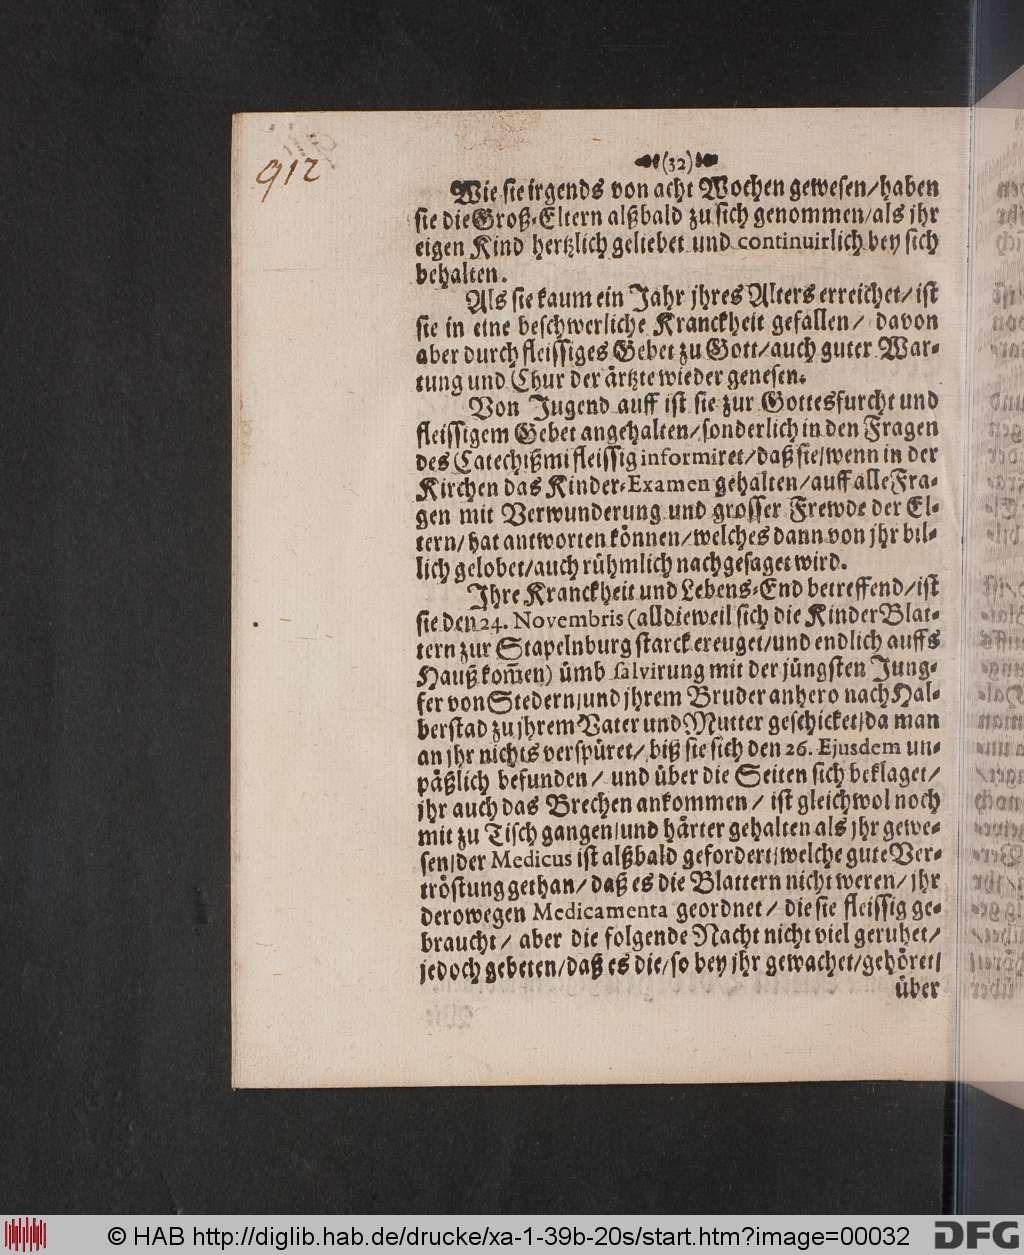 912
(32)
Wie sie irgends von acht Wochen gewesen/haben
sie die Groß-Eltern alßbald zu sich genommen/als jhr
eigen Kind hertzlich geliebet und continuirlich bey sich
behalten.
Als sie kaum ein Jahr jhres Alters erreichet/ist
sie in eine beschwerliche Kranckheit gefallen/ davon
aber durch fleissiges Gebet zu Gott/auch guter War-
tung und Chur der ärtzte wieder genesen.
Von Jugend auff ist sie zur Gottesfurcht und
fleissigem Gebet angehalten/sonderlich in den Fragen
des Catechißmi fleissig informiret/daß sie/wenn in der
Kirchen das Kinder-Examen gehalten/auff alle Fra-
gen mit Verwunderung und grosser Frewde der El-
tern/hat antworten können/welches dann von jhr bil-
lich gelobet/auch rühmlich nachgesaget wird.
Ihre Kranckheit und Lebens-End betreffend/ist
sie den 24. Novembris (alldieweil sich die Kinder Blat-
tern zur Stapelnburg starck ereuget/und endlich auffs
Hauß kom̃en) ümb salvirung mit der jüngsten Jung-
fer von Stedern/und jhrem Bruder anhero nach Hal-
berstad zu jhrem Vater und Mutter geschicket/da man
an jhr nichts verspüret/ biß sie sich den 26. Ejusdem un-
päßlich befunden/ und über die Seiten sich beklaget/
jhr auch das Brechen ankommen/ ist gleichwol noch
mit zu Tisch gangen/und härter gehalten als jhr gewe-
sen/der Medicus ist alßbald gefordert/welche gute Ver-
tröstung gethan/ daß es die Blattern nicht weren/ jhr
derowegen Medicamenta geordnet/ die sie fleissig ge-
braucht/ aber die folgende Nacht nicht viel geruhet/
jedoch gebeten/daß es die/so bey jhr gewachet/gehöret/
über
© HAB http://diglib.hab.de/drucke/xa-1-39b-20s/start.htm?image=00032
DFG